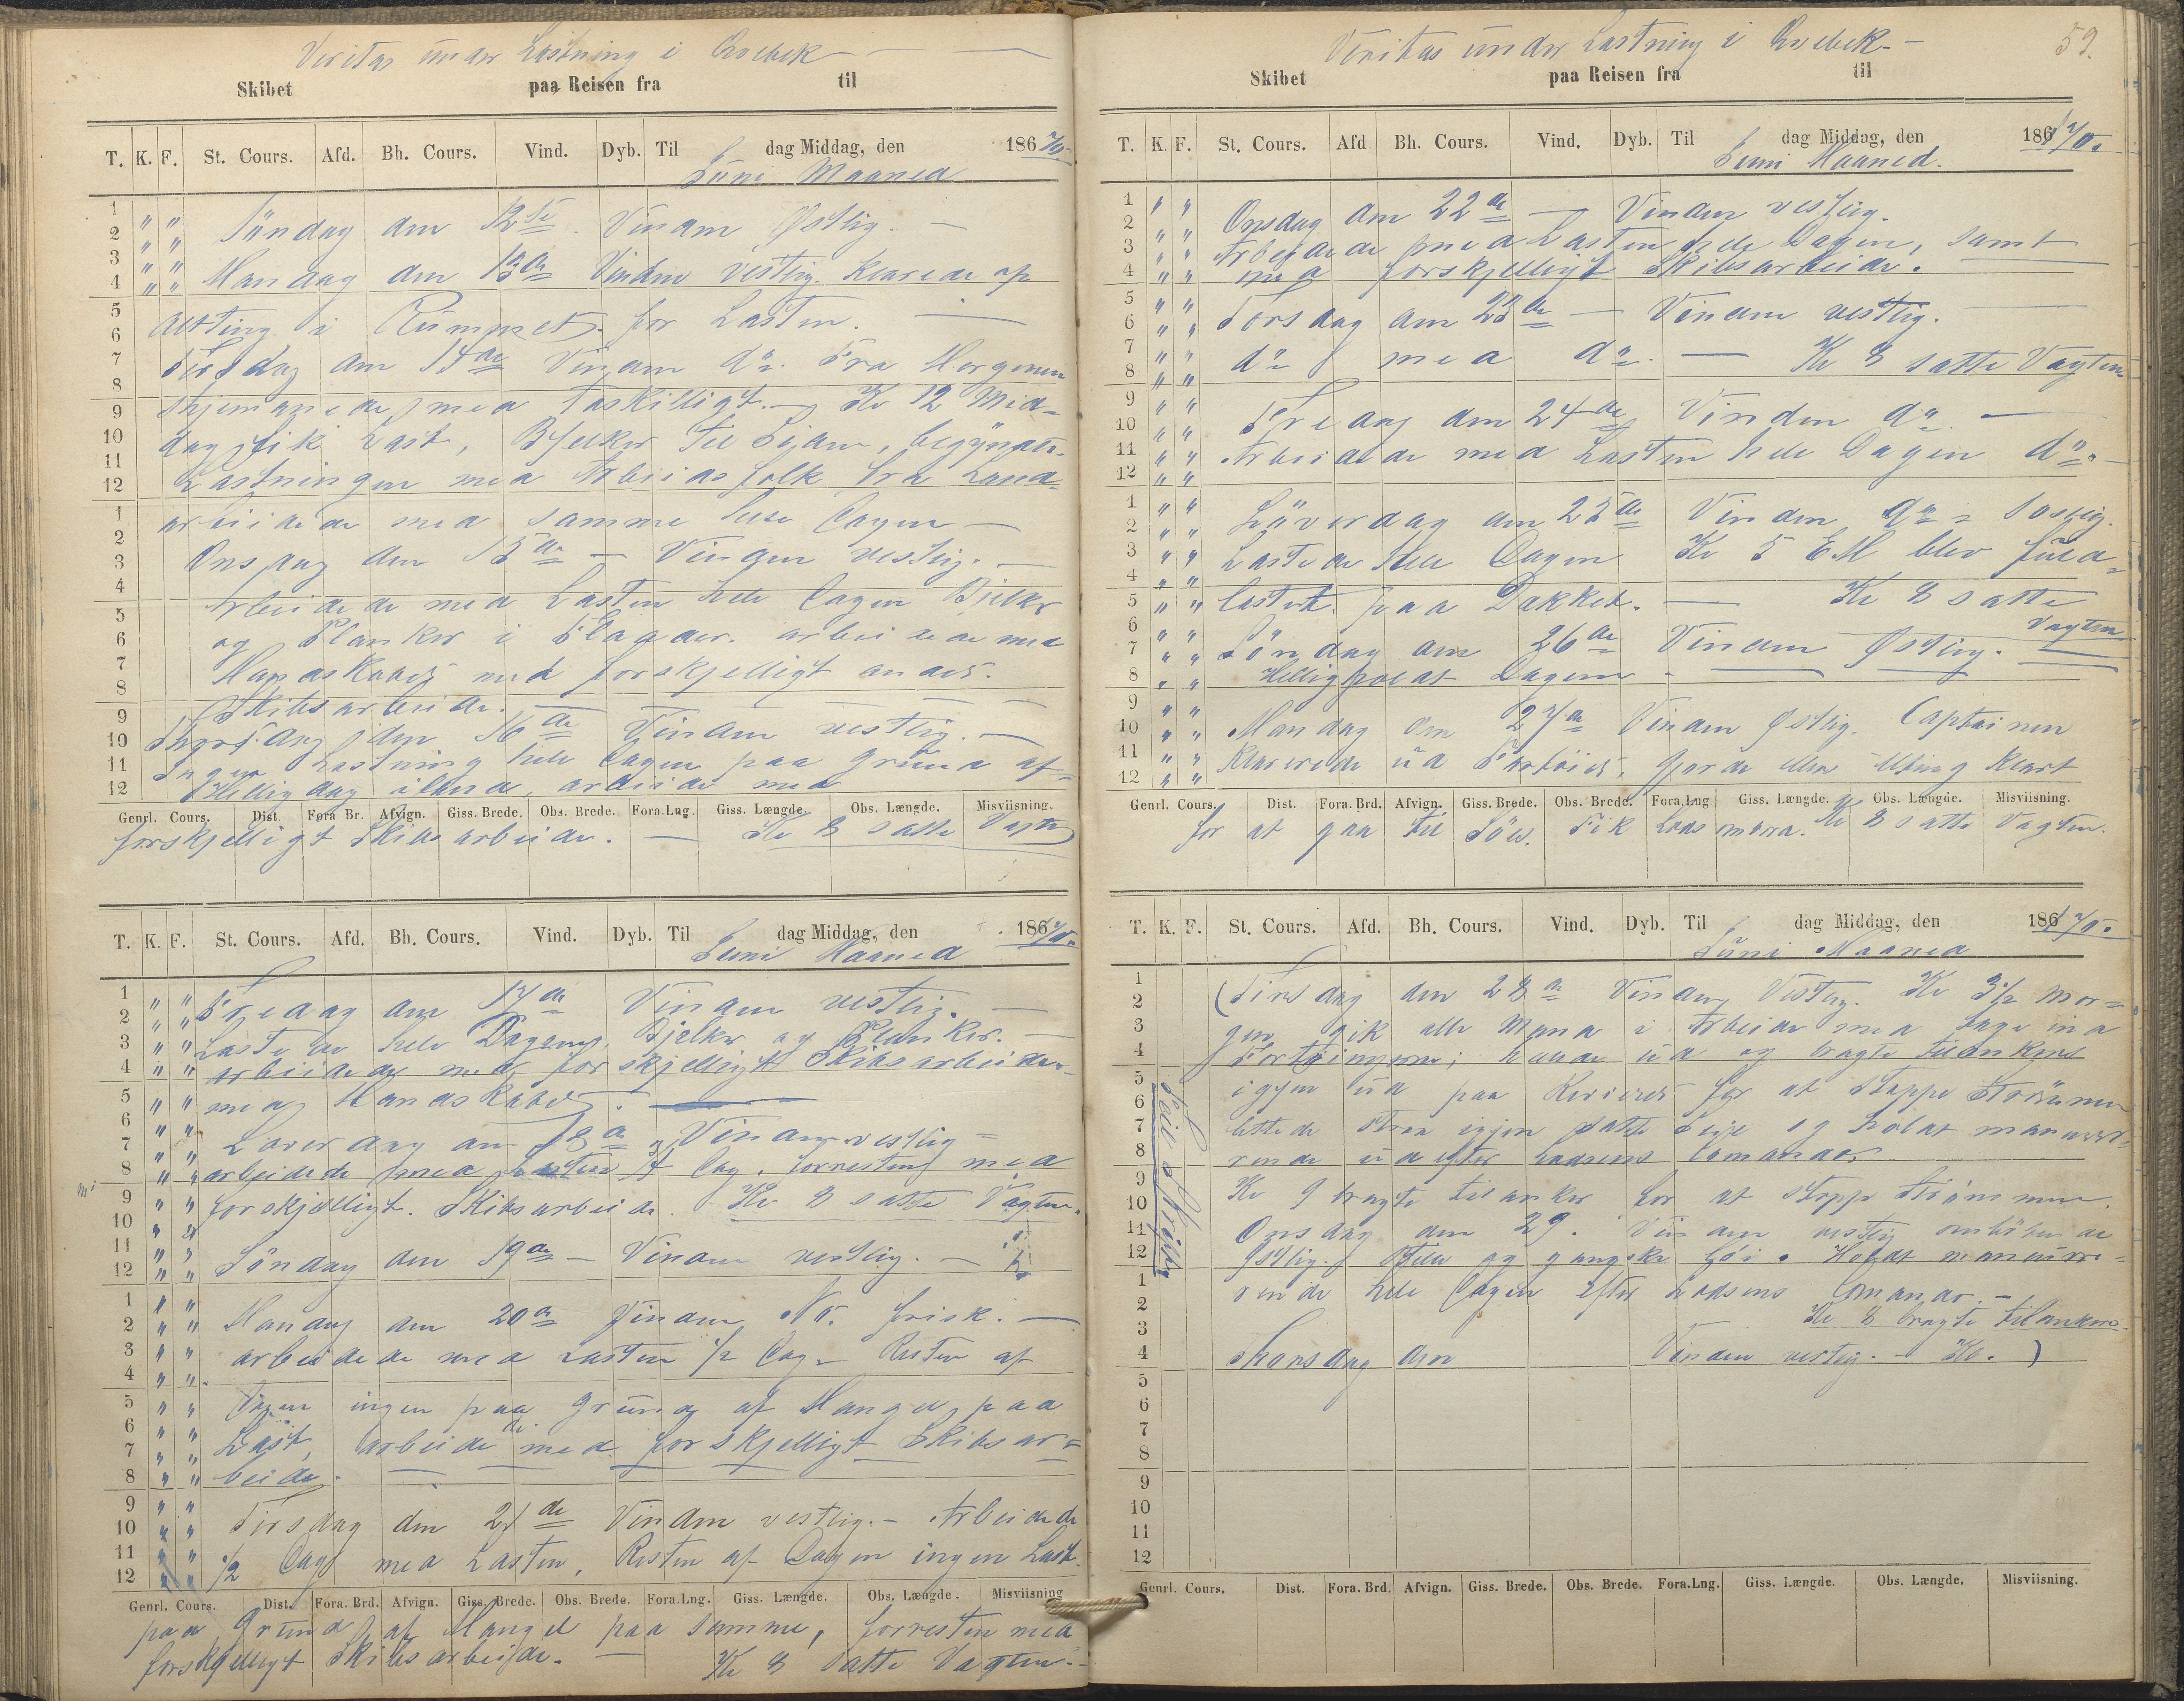 Veritas under Lastning i Qvebek
Skibet paa Reisen fra til
T. K. F. St. Cours. Afd. Bh. Cours. Vind. Dyb. Til dag Middag, den 186
Juni Maaned
Söndag den 12te Vinden Østlig. —
Mandag den 13de Vinden vestlig. Klarede op
alting i Rummet for Lasten. —
Tirsdag den 14de Vinden do. Fra Morgenen
med forskilligt. Kl 12 Mid-
dag fik Last, Bjelker til Siden, begynte
Lastningen med Arbeidsfolk fra Land
arbeidede med samme hele Dagen —
Onsdag den 15de — Vinden vestlig. —
Arbeidede med Lasten hele Dagen Bjelker
og Planker i Flaader. arbeidede med
Mandskabet med forskjelligt andet.
Skibsarbeide. —
Thorsdag den 16de Vinden vestlig. —
Ingen Lastning hele Dagen paa Grund af
Helligdag iland, arbeide med
Genrl. Cours. Dist. Fora Br. Afvign. Giss. Brede. Obs. Brede. Fora.Lng. Giss. Længde. Obs. Længde. Misviisning.
forskjelligt Skibsarbeide. — Kl 8 satte Vagten
T. K. F. St. Cours. Afd. Bh. Cours. Vind. Dyb. Til dag Middag, den 186
Juni Maaned
Fredag den 17de Vinden vestlig. —
Lastede hele Dagen, Bjelker og Planker. —
arbeidede med forskjelligt Skibsarbeide
med Mandskabet. —
Löverdag den 18de Vinden vestlig —
arbeidede med Lasten 1/2 Dag. forresten med
forskjelligt. Skibsarbeide. Kl 8 satte Vagten.
Söndag den 19de — Vinden vestlig. —
Mandag den 20de Vinden NO. frisk. —
arbeidede med Lasten 1/2 Dag. Resten af
Dagen ingen paa Grund af Mangel paa
Last, arbeidede med forskjelligt Skibsar-
beide. —
Tirsdag den 21de Vinden vestlig. — Arbeidede
1/2 Dag med Lasten, Resten af Dagen ingen Last.
Genrl. Cours. Dist. Fora. Brd. Afvign. Giss. Brede. Obs. Brede. Fora.Lng. Giss. Længde. Obs. Længde. Misviisning
paa Grund af Mangel paa samme, forresten med
forskjelligt Skibsarbeide. — Kl 8 satte Vagten. —
Veritas under Lastning i Qvebek. — 59.
Skibet paa Reisen fra til
T. K. F. St. Cours. Afd Bh. Cours. Vind. Dyb. Til dag Middag, den 186
Juni Maaned.
Onsdag den 22de — Vinden vestlig.
Arbeidede med Lasten hele Dagen, samt
med forskjelligt Skibsarbeide.
Torsdag den 23de — Vinden vestlig.
do med do. — Kl 8 satte Vagten
Fredag den 24de Vinden do —
Arbeidede med Lasten hele Dagen do. —
Löverdag den 25de Vinden do
Lastede hele Dagen Kl 5 EM blev fuld-
lastet. paa Dækket. — Kl 8 satte
Vagten
Söndag den 26de Vinden Østlig.
Helligholdt Dagen —
Mandag den 27de Vinden Østlig. Captainen
Klarerede ud Fartöiet, gjorde alting klart
Genrl. Cours. Dist. Fora. Brd. Afvign. Giss. Brede. Obs. Brede. Fora.Lng Giss. Længde. Obs. Længde. Misviisning.
for at gaa til Söes. Fik Lods ombord. Kl 8 satte Vagten.
T. K. F. St. Cours. Afd. Bh. Cours. Vind. Dyb. Til dag Middag, den 186
Juni Maaned
(Tirsdag den 28de Vinden Vestlig. Kl 3 1/2 mor-
gen gik alle Mand i Arbeide med tage ind
Fortöiningerne; ud og bragte tilankers
igjen ud paa Reviret for at stoppe Strömmen
lettede strax igjen satte Seil og holdt manuvre-
rende ud efter Lodsens Comandor
Kl 9 bragte tilanker for at stoppe Strömmen.
Onsdag den 29. Vinden vestlig omløbende
Østlig. Stille og ganske Löi. Holdt manuvre-
rende hele Dagen efter Lodsens Comandor. —
Kl 8 bragte tilankers.
Thorsdag den Vinden vestlig. — Kl. )
Genrl. Cours. Dist. Fora. Brd. Afvign. Giss. Brede. Obs. Brede. Fora.Lng. Giss. Længde. Obs. Længde. Misviisning.